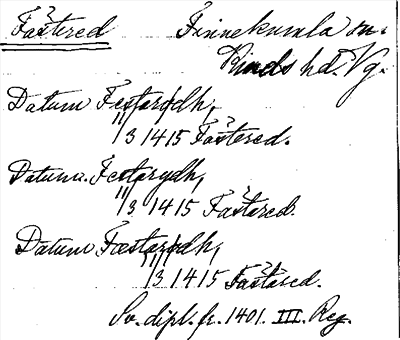 Fåstered Finnekumla sn.
Kinds hd. Vg.
Datum Festarydh,
11/3 1415 Fåstered.
Datum. Festarydh,
11/3 1415 Fåstered.
Datum Fæstarydh,
11/3 1415 Fåstered.
Sv. dipl. fr. 1401. III. Reg.